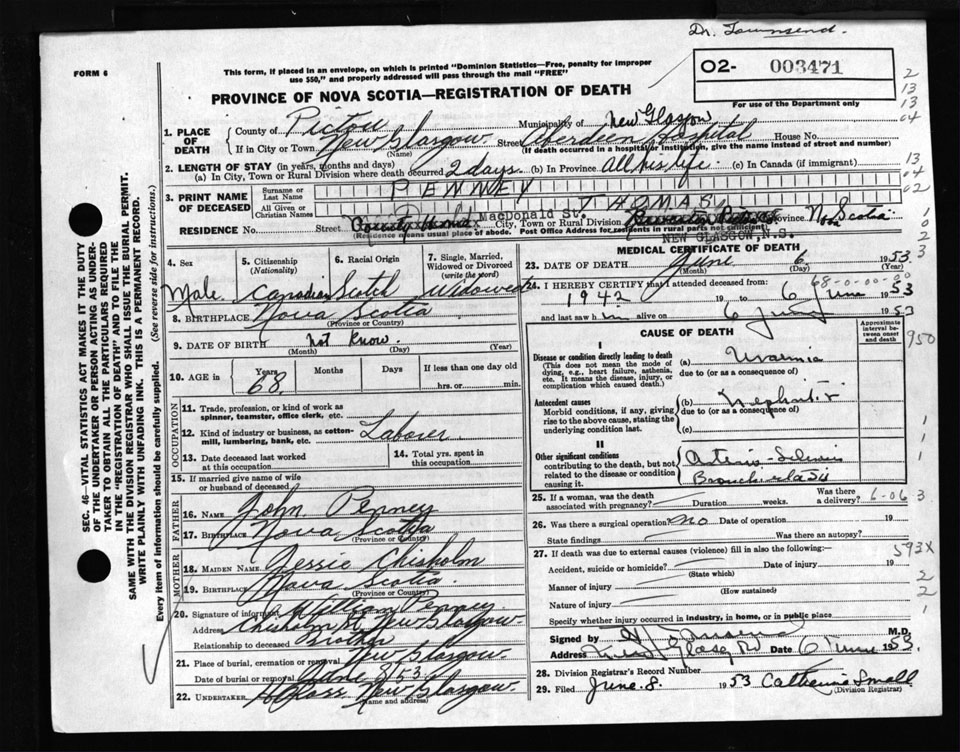 Dr. Townsend.
FORM 6
This form, if placed in an envelope, on which is printed "Dominion Statistics—Free, penalty for improper
use $50," and properly addressed will pass through the mail "FREE"
02- 003471
For use of the Department only
PROVINCE OF NOVA SCOTIA—REGISTRATION OF DEATH
2
13
13
04
1. PLACE OF DEATH
County of Pictou Municipality of New Glasgow
If in City or Town New Glasgow (Name) Street Aberdeen Hospital House No.
(If death occurred in a hospital or institution, give the name instead of street and number)
2. LENGTH OF STAY (in years, months and days)
(a) In City, Town or Rural Division where death occurred 2 days. (b) In Province All his life. (c) In Canada (if immigrant)
13
04
02
3. PRINT NAME OF DECEASED
Surname or Last Name PENNEY
All Given or Christian Names THOMAS
RESIDENCE No. Street County Home MacDonald St. City, Town or Rural Division Province Nova Scotia.
(Residence means usual place of abode. Post Office Address for residents in rural parts not sufficient)
NEW GLASGOW, N.S.
4. Sex
Male
5. Citizenship (Nationality)
Canadian
6. Racial Origin
Scotch
7. Single, Married, Widowed or Divorced (write the word)
Widowed
8. BIRTHPLACE Nova Scotia
(Province or Country)
9. DATE OF BIRTH Not Know.
(Month) (Day) (Year)
10. AGE in
Years 68. Months Days If less than one day old
hrs. or min.
OCCUPATION
11. Trade, profession, or kind of work as
spinner, teamster, office clerk, etc.
12. Kind of industry or business, as cotton-
mill, lumbering, bank, etc. Laborer
13. Date deceased last worked
at this occupation
14. Total yrs. spent in
this occupation
15. If married give name of wife
or husband of deceased
FATHER
16. Name John Penney
17. Birthplace Nova Scotia
(Province or Country)
MOTHER
18. MAIDEN NAME Jessie Chisholm
19. BIRTHPLACE Nova Scotia.
(Province or Country)
20. Signature of informant William Penney.
Address Chisholm St New Glasgow.
Relationship to deceased Brother
21. Place of burial, cremation or removal New Glasgow.
Date of burial or removal June 8/53
22. UNDERTAKER H Glass, New Glasgow.
(Name and address)
MEDICAL CERTIFICATE OF DEATH
23. DATE OF DEATH June 6 1953
(Month) (Day) (Year)
68-0-00-00
24. I HEREBY CERTIFY that I attended deceased from:
1942 19 to 6 June 1953
and last saw him alive on 6 June 1953
CAUSE OF DEATH
Approximate interval between onset and death
950
I
Disease or condition directly leading to death
(This does not mean the mode of
dying, e.g., heart failure, asthenia,
etc. It means the disease, injury, or
complication which caused death.)
(a) Uraemia
due to (or as a consequence of)
Antecedent causes
Morbid conditions, if any, giving
rise to the above cause, stating the
underlying condition last.
(b) Nephritis
due to (or as a consequence of)
(c)
II
Other significant conditions
contributing to the death, but not
related to the disease or condition
causing it.
Arterio-Sclerosis
25. If a woman, was the death
associated with pregnancy? Duration weeks. Was there
a delivery?
6-06 3
26. Was there a surgical operation? No Date of operation 19
State findings Was there an autopsy?
27. If death was due to external causes (violence) fill in also the following:—
593X
Accident, suicide or homicide? Date of injury 19
(State which)
Manner of injury
(How sustained)
Nature of injury
Specify whether injury occurred in industry, in home, or in public place
Signed by M.D.
Address New Glasgow Date 6 June 1953.
28. Division Registrar's Record Number
29. Filed June. 8. 1953 Catherine Small
(Division Registrar)
SEC. 46—VITAL STATISTICS ACT MAKES IT THE DUTY
OF THE UNDERTAKER OR PERSON ACTING AS UNDER-
TAKER TO OBTAIN ALL THE PARTICULARS REQUIRED
IN THE "REGISTRATION OF DEATH" AND TO FILE THE
SAME WITH THE DIVISION REGISTRAR WHO SHALL ISSUE THE BURIAL PERMIT.
WRITE PLAINLY WITH UNFADING INK. THIS IS A PERMANENT RECORD.
Every item of information should be carefully supplied. (See reverse side for instructions.)